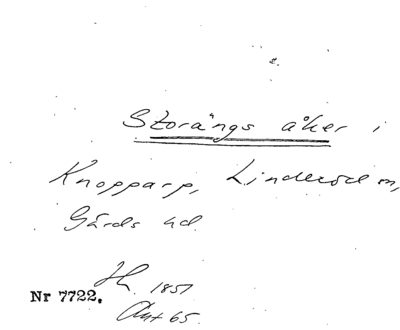 Storängs åker i
Knopparp, Linderöd sn,
Gärds hd.
1857
Nr 7722.
Akt 65.